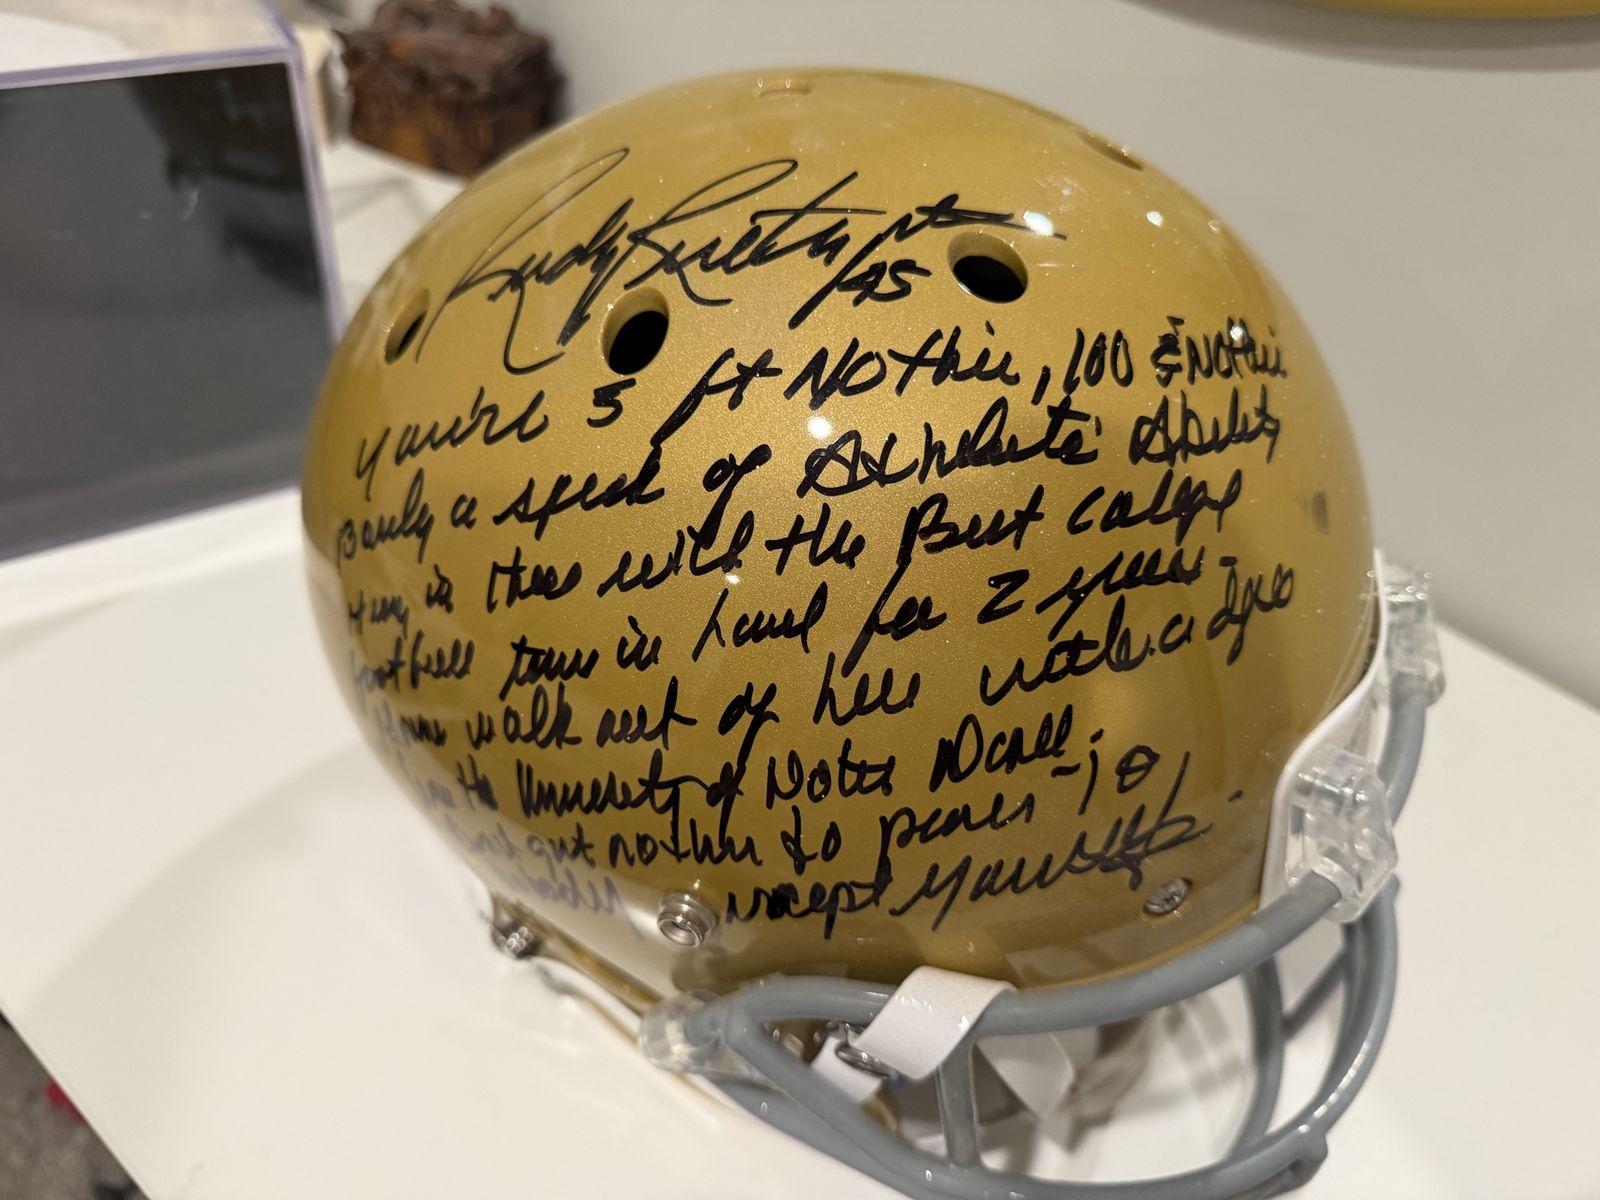 Rudy Ruettiger
45
you're 5 ft Nothin, 100 & Nothin
Barely a speck of Athletic Ability
Hung in there with the Best college
football team in land for 2 years.
walk out of here with a degree
from the University of Notre Dame.
got nothin to prove to
except yourself.